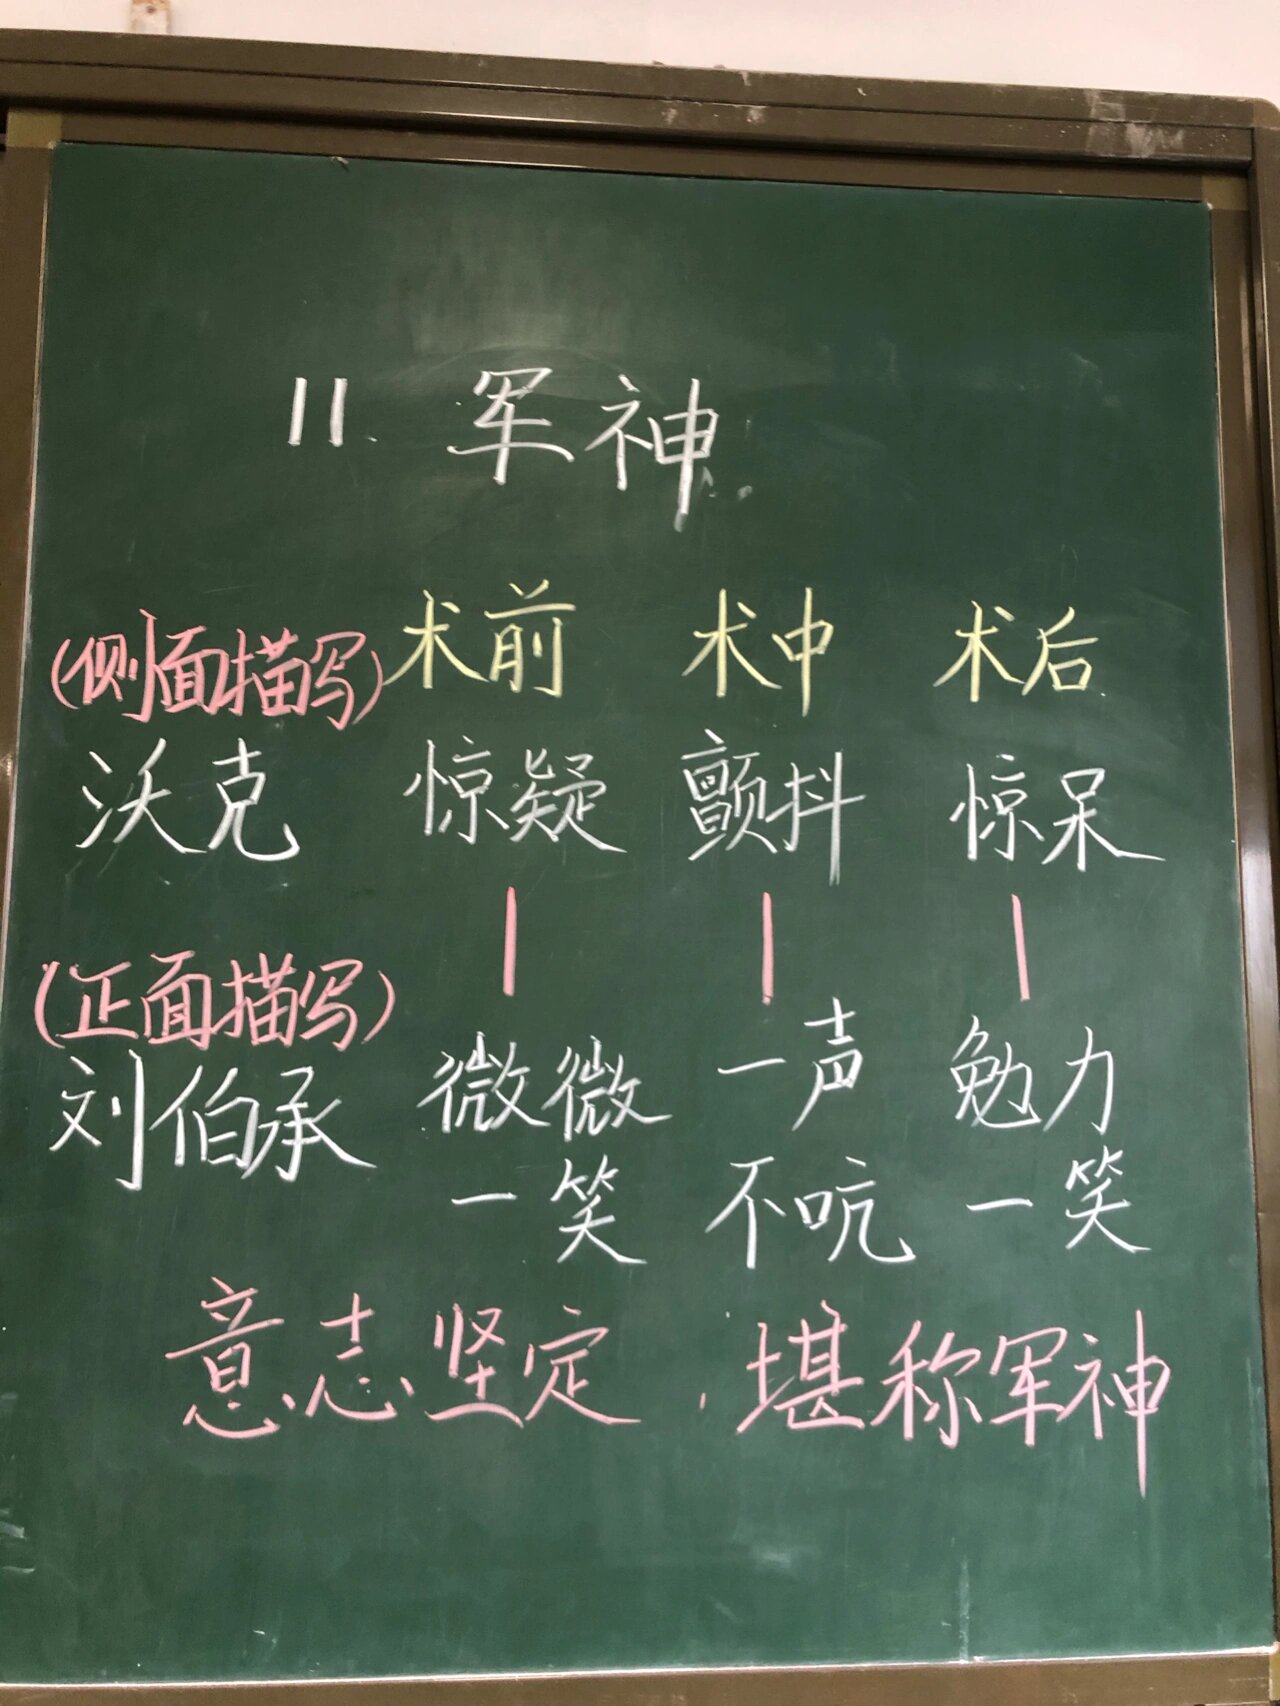 11. 军神
(侧面描写) 术前 术中 术后
沃克 惊疑 颤抖 惊呆
(正面描写)
刘伯承 微微 一声 勉力
一笑 不吭 一笑
意志坚定，堪称军神